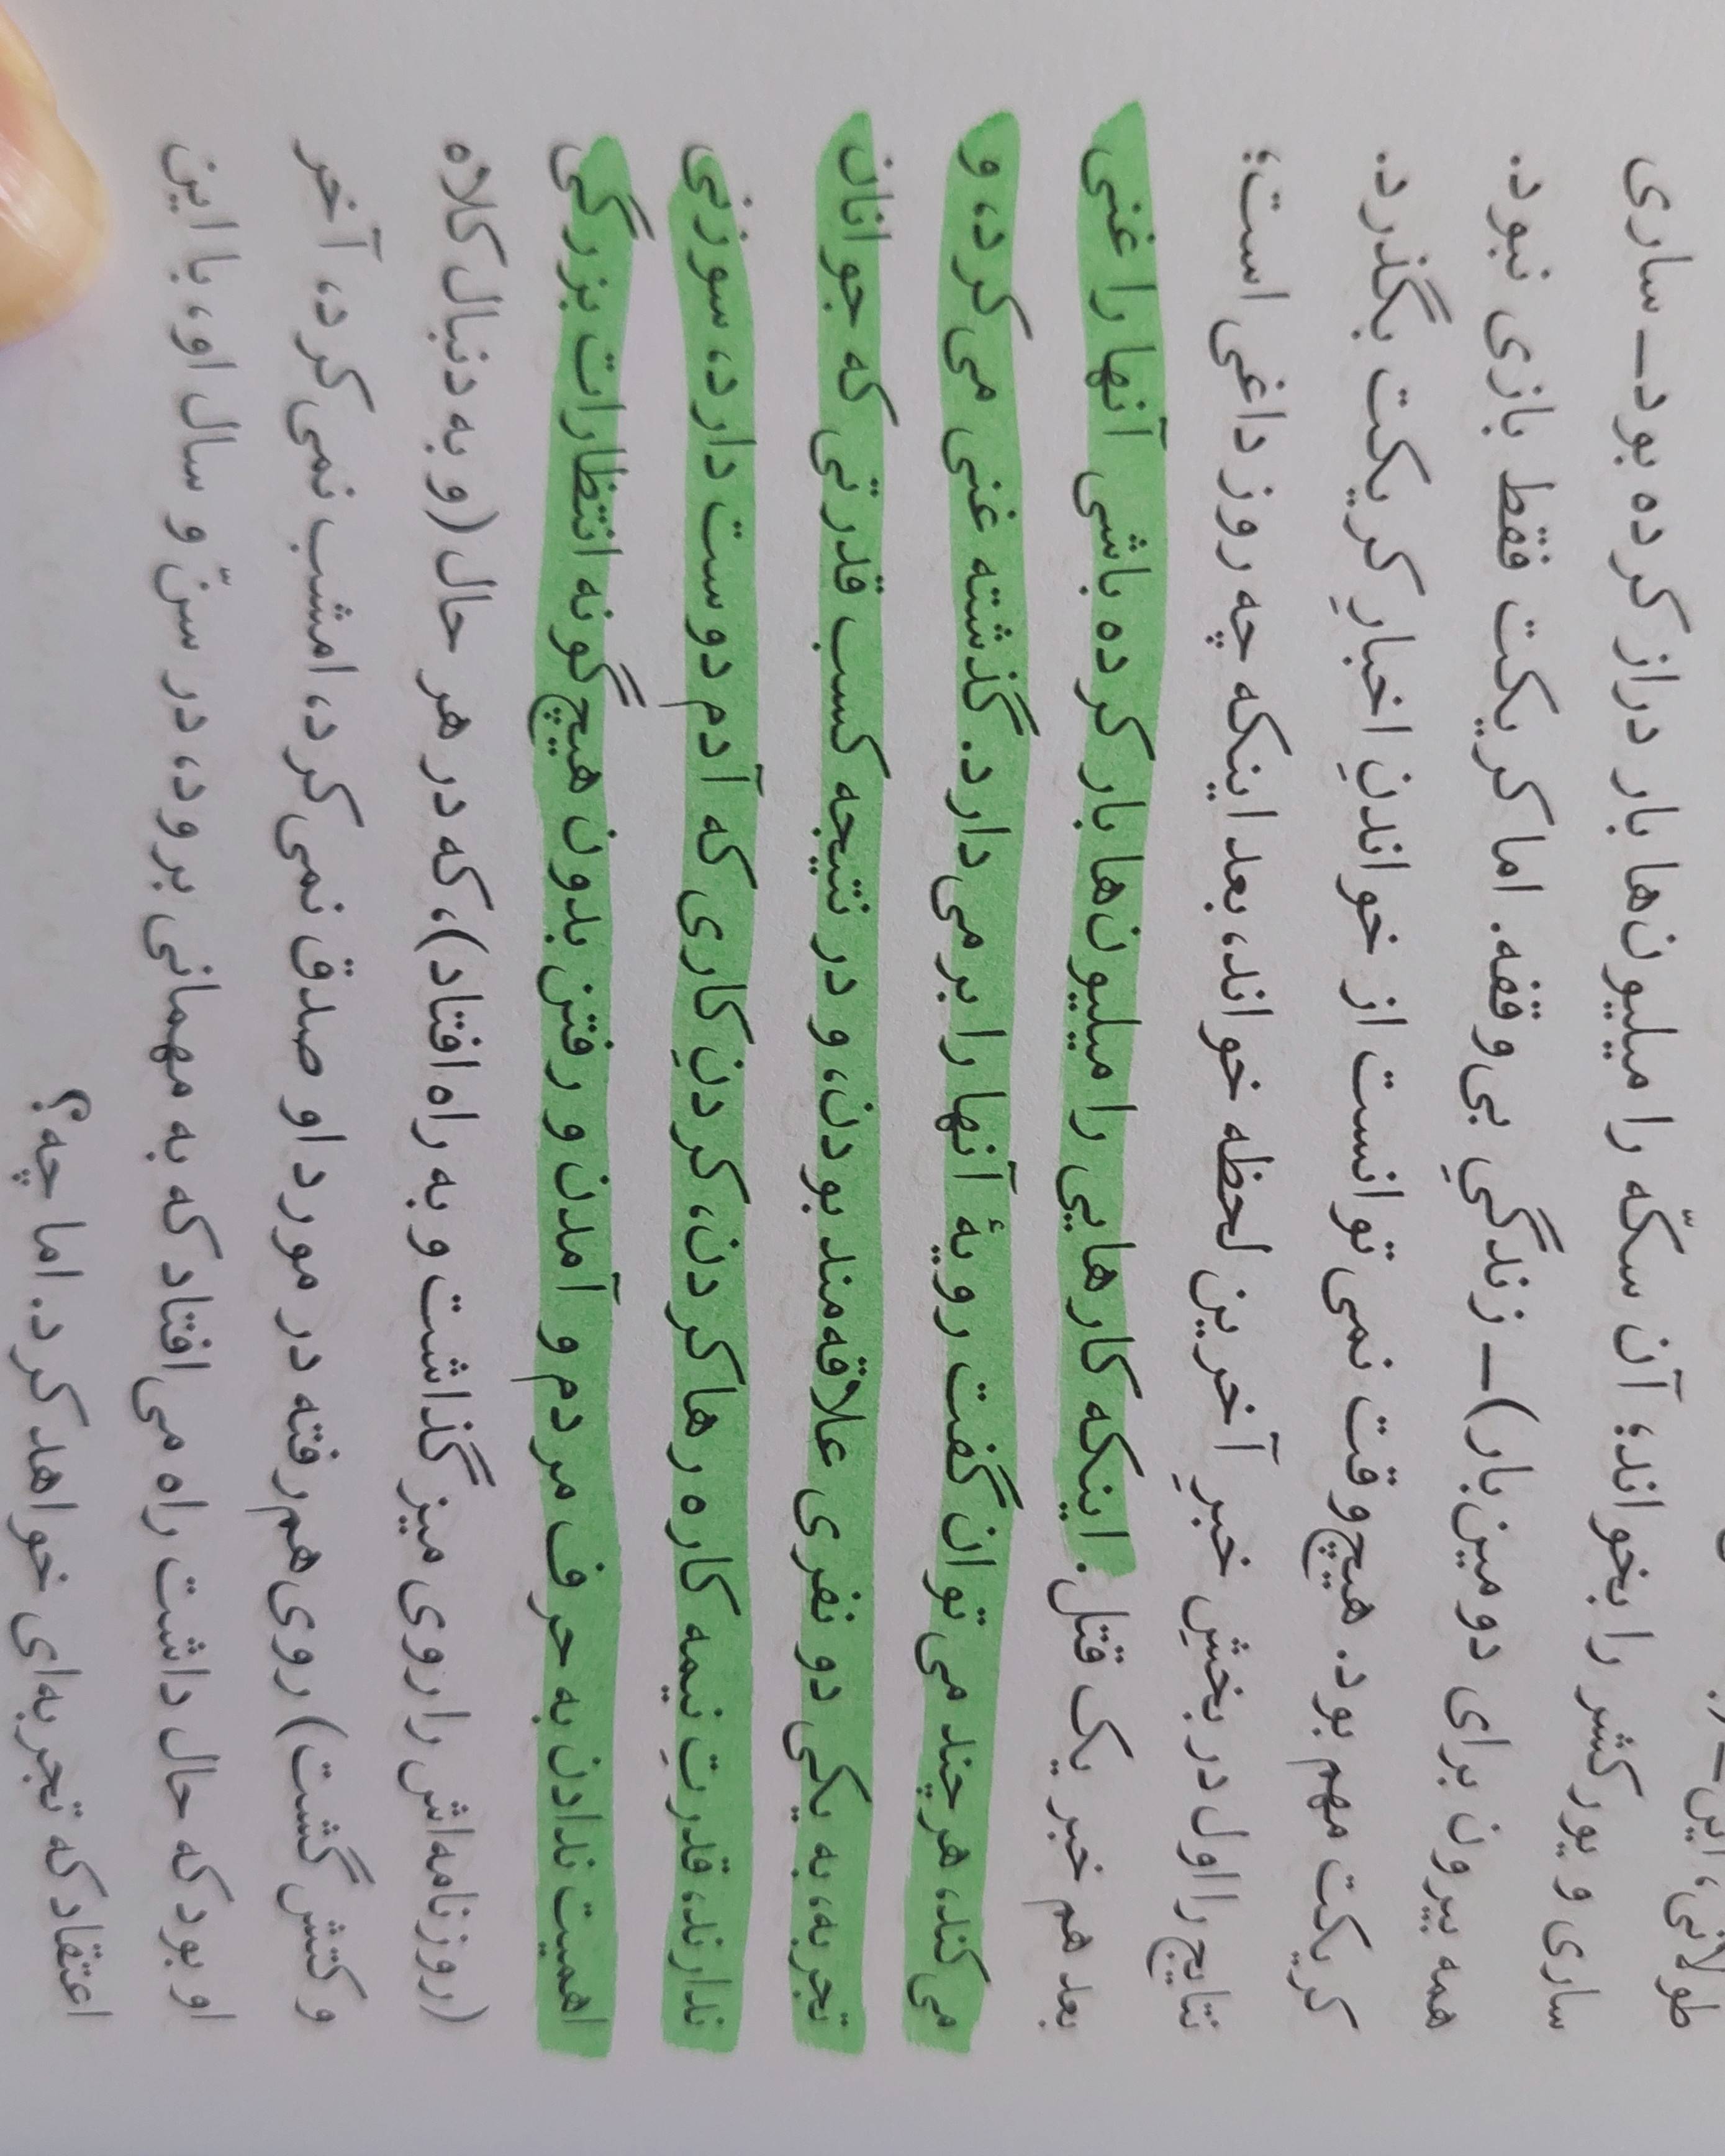 طولانی، این
ساری و یورکشر را بخواند؛ آن سکّه را میلیون‌ها بار دراز کرده بود ــ ساری
همه بیرون برای دومین بار) ــ زندگیِ بی‌وقفه. اما کریکت فقط بازی نبود.
کریکت مهم بود. هیچ‌وقت نمی‌توانست از خواندنِ اخبارِ کریکت بگذرد.
نتایج را اول در بخشِ خبرِ آخرین لحظه خواند، بعد اینکه چه روز داغی است؛
بعد هم خبر یک قتل. اینکه کارهایی را میلیون‌ها بار کرده باشی آنها را غنی
می‌کند، هرچند می‌توان گفت رویهٔ آنها را برمی‌دارد. گذشته غنی می‌کرد، و
تجربه، به یکی دو نفری علاقه‌مند بودن، و در نتیجه کسب قدرتی که جوانان
ندارند، قدرتِ نیمه کاره رها کردن، کردنِ کاری که آدم دوست دارد، سوزنی
اهمیت ندادن به حرف مردم و آمدن و رفتن بدون هیچ‌گونه انتظارات بزرگی
(روزنامه‌اش را روی میز گذاشت و به راه افتاد)، که در هر حال (و به دنبال کلاه
و کتش گشت) روی‌هم‌رفته در مورد او صدق نمی‌کرد، امشب نمی‌کرد، آخر
او بود که حال داشت راه می‌افتاد که به مهمانی برود، در سنّ و سال او، با این
اعتقاد که تجربه‌ای خواهد کرد. اما چه؟